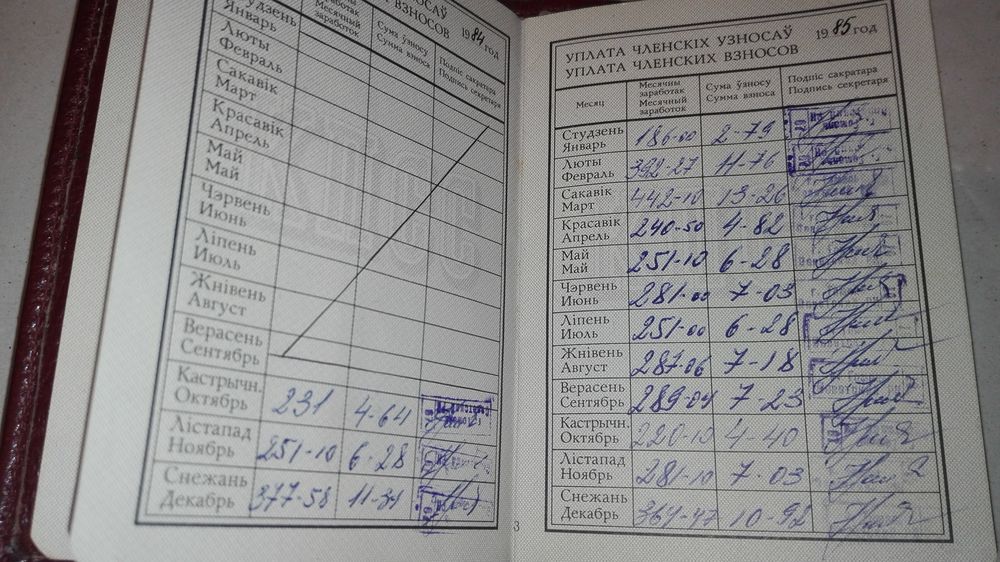 УПЛАТА ЧЛЕНСКІХ УЗНОСАЎ
УПЛАТА ЧЛЕНСКИХ ВЗНОСОВ
1985 год
Месяц
Месячны заработак
Месячный заработок
Сума ўзносу
Сумма взноса
Подпіс сакратара
Подпись секретаря
Студзень
Январь 186-00 2-79
Люты
Февраль 392-27 11-76
Сакавік
Март 442-10 13-26
Красавік
Апрель 240-50 4-82
Май
Май 251-10 6-28
Чэрвень
Июнь 281-00 7-03
Ліпень
Июль 251-00 6-28
Жнівень
Август 287-06 7-18
Верасень
Сентябрь 289-04 7-23
Кастрычн.
Октябрь 220-10 4-40
Лістапад
Ноябрь 281-10 7-03
Снежань
Декабрь 364-47 10-92
УЗНОСАЎ
ВЗНОСОВ
1984 год
заработак
Месячный
заработок
Сума ўзносу
Сумма взноса
Подпіс сакратара
Подпись секретаря
Студзень
Январь
Люты
Февраль
Сакавік
Март
Красавік
Апрель
Май
Май
Чэрвень
Июнь
Ліпень
Июль
Жнівень
Август
Верасень
Сентябрь
Кастрычн.
Октябрь 231 4-64
Лістапад
Ноябрь 251-10 6-28
Снежань
Декабрь 377-58 11-34